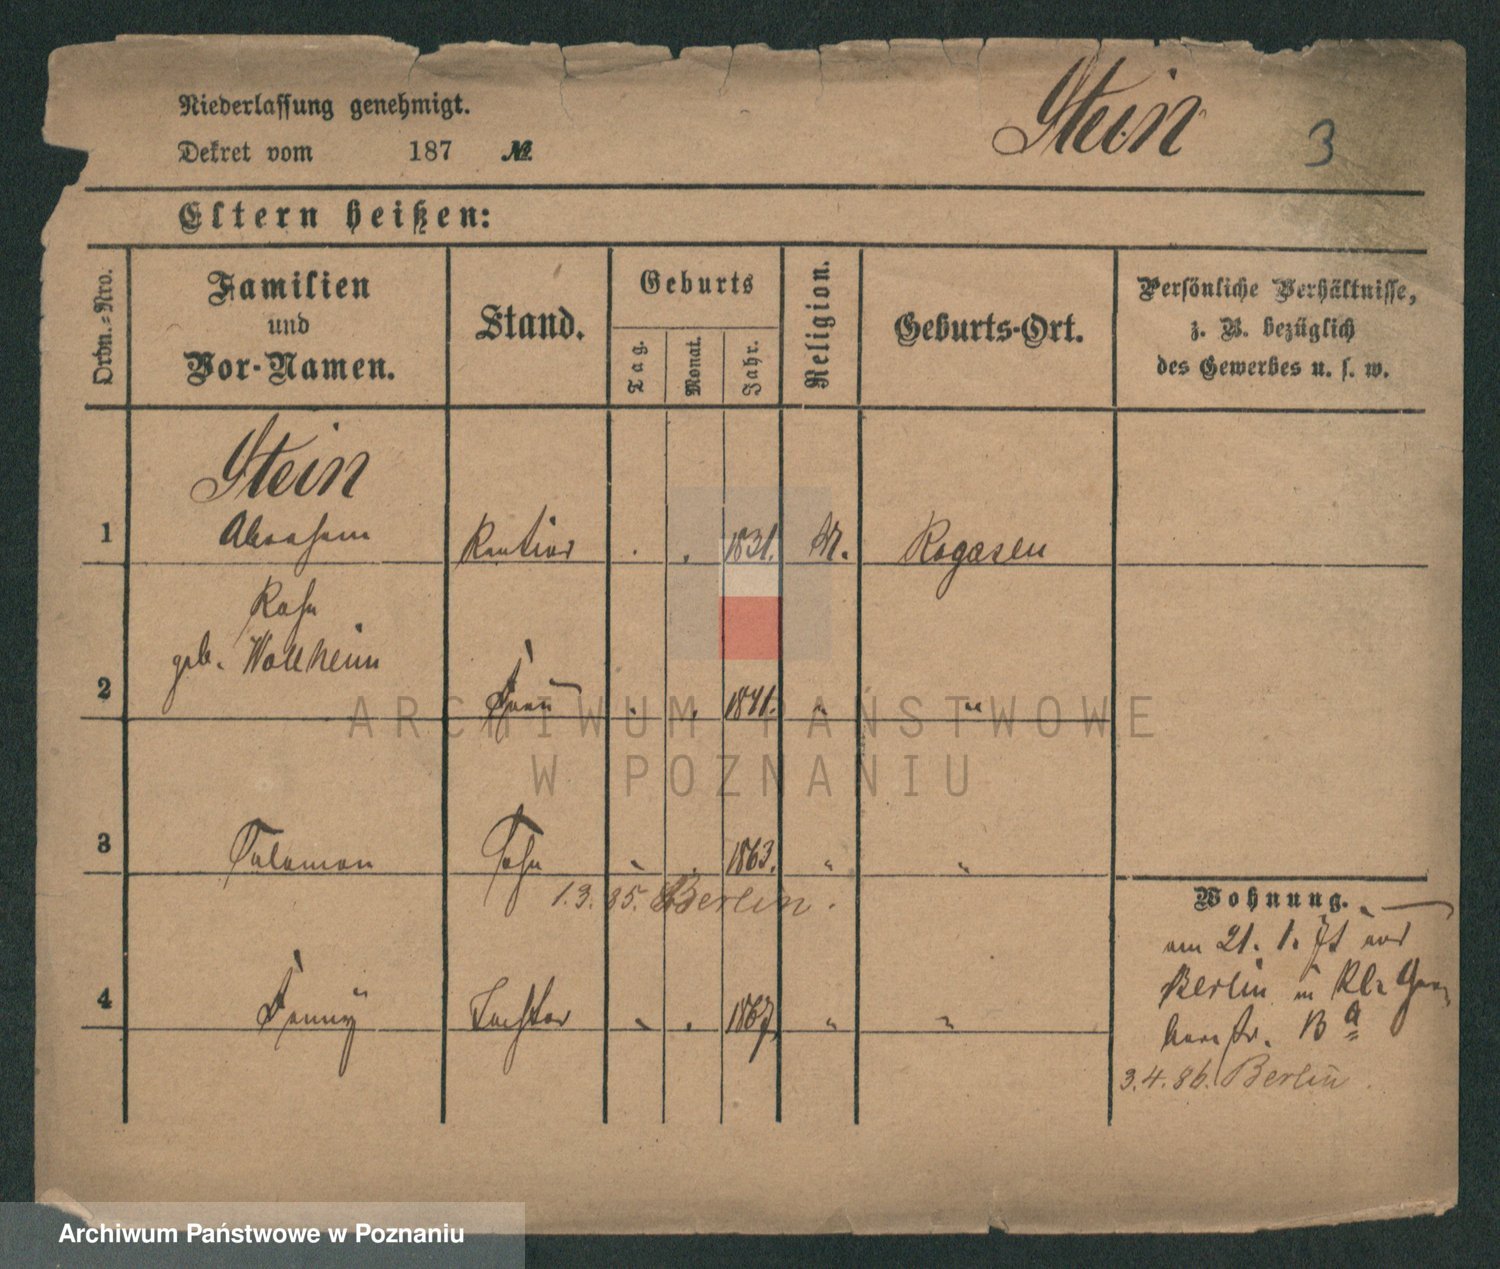 Niederlassung genehmigt.
Stein
3
Dekret vom 187 №
Eltern heißen:
Ordn.=Nro.
Familien
und
Vor-Namen.
Stand.
Geburts
Tag.
Monat.
Jahr.
Religion.
Geburts-Ort.
Persönliche Verhältnisse,
z. B. bezüglich
des Gewerbes u. s. w.
Stein
1 Abraham Rentier . . 1831. M. Rogasen
geb. Wollheim
2 Frau 1841. "
3 Salomon Sohn 1863. " "
1.3.85. Berlin.
4 Fanny Tochter 1867. " "
Wohnung.
am 21. 1.
Berlin in
B a
3.4.86. Berlin.
ARCHIWUM PAŃSTWOWE
W POZNANIU
Archiwum Państwowe w Poznaniu